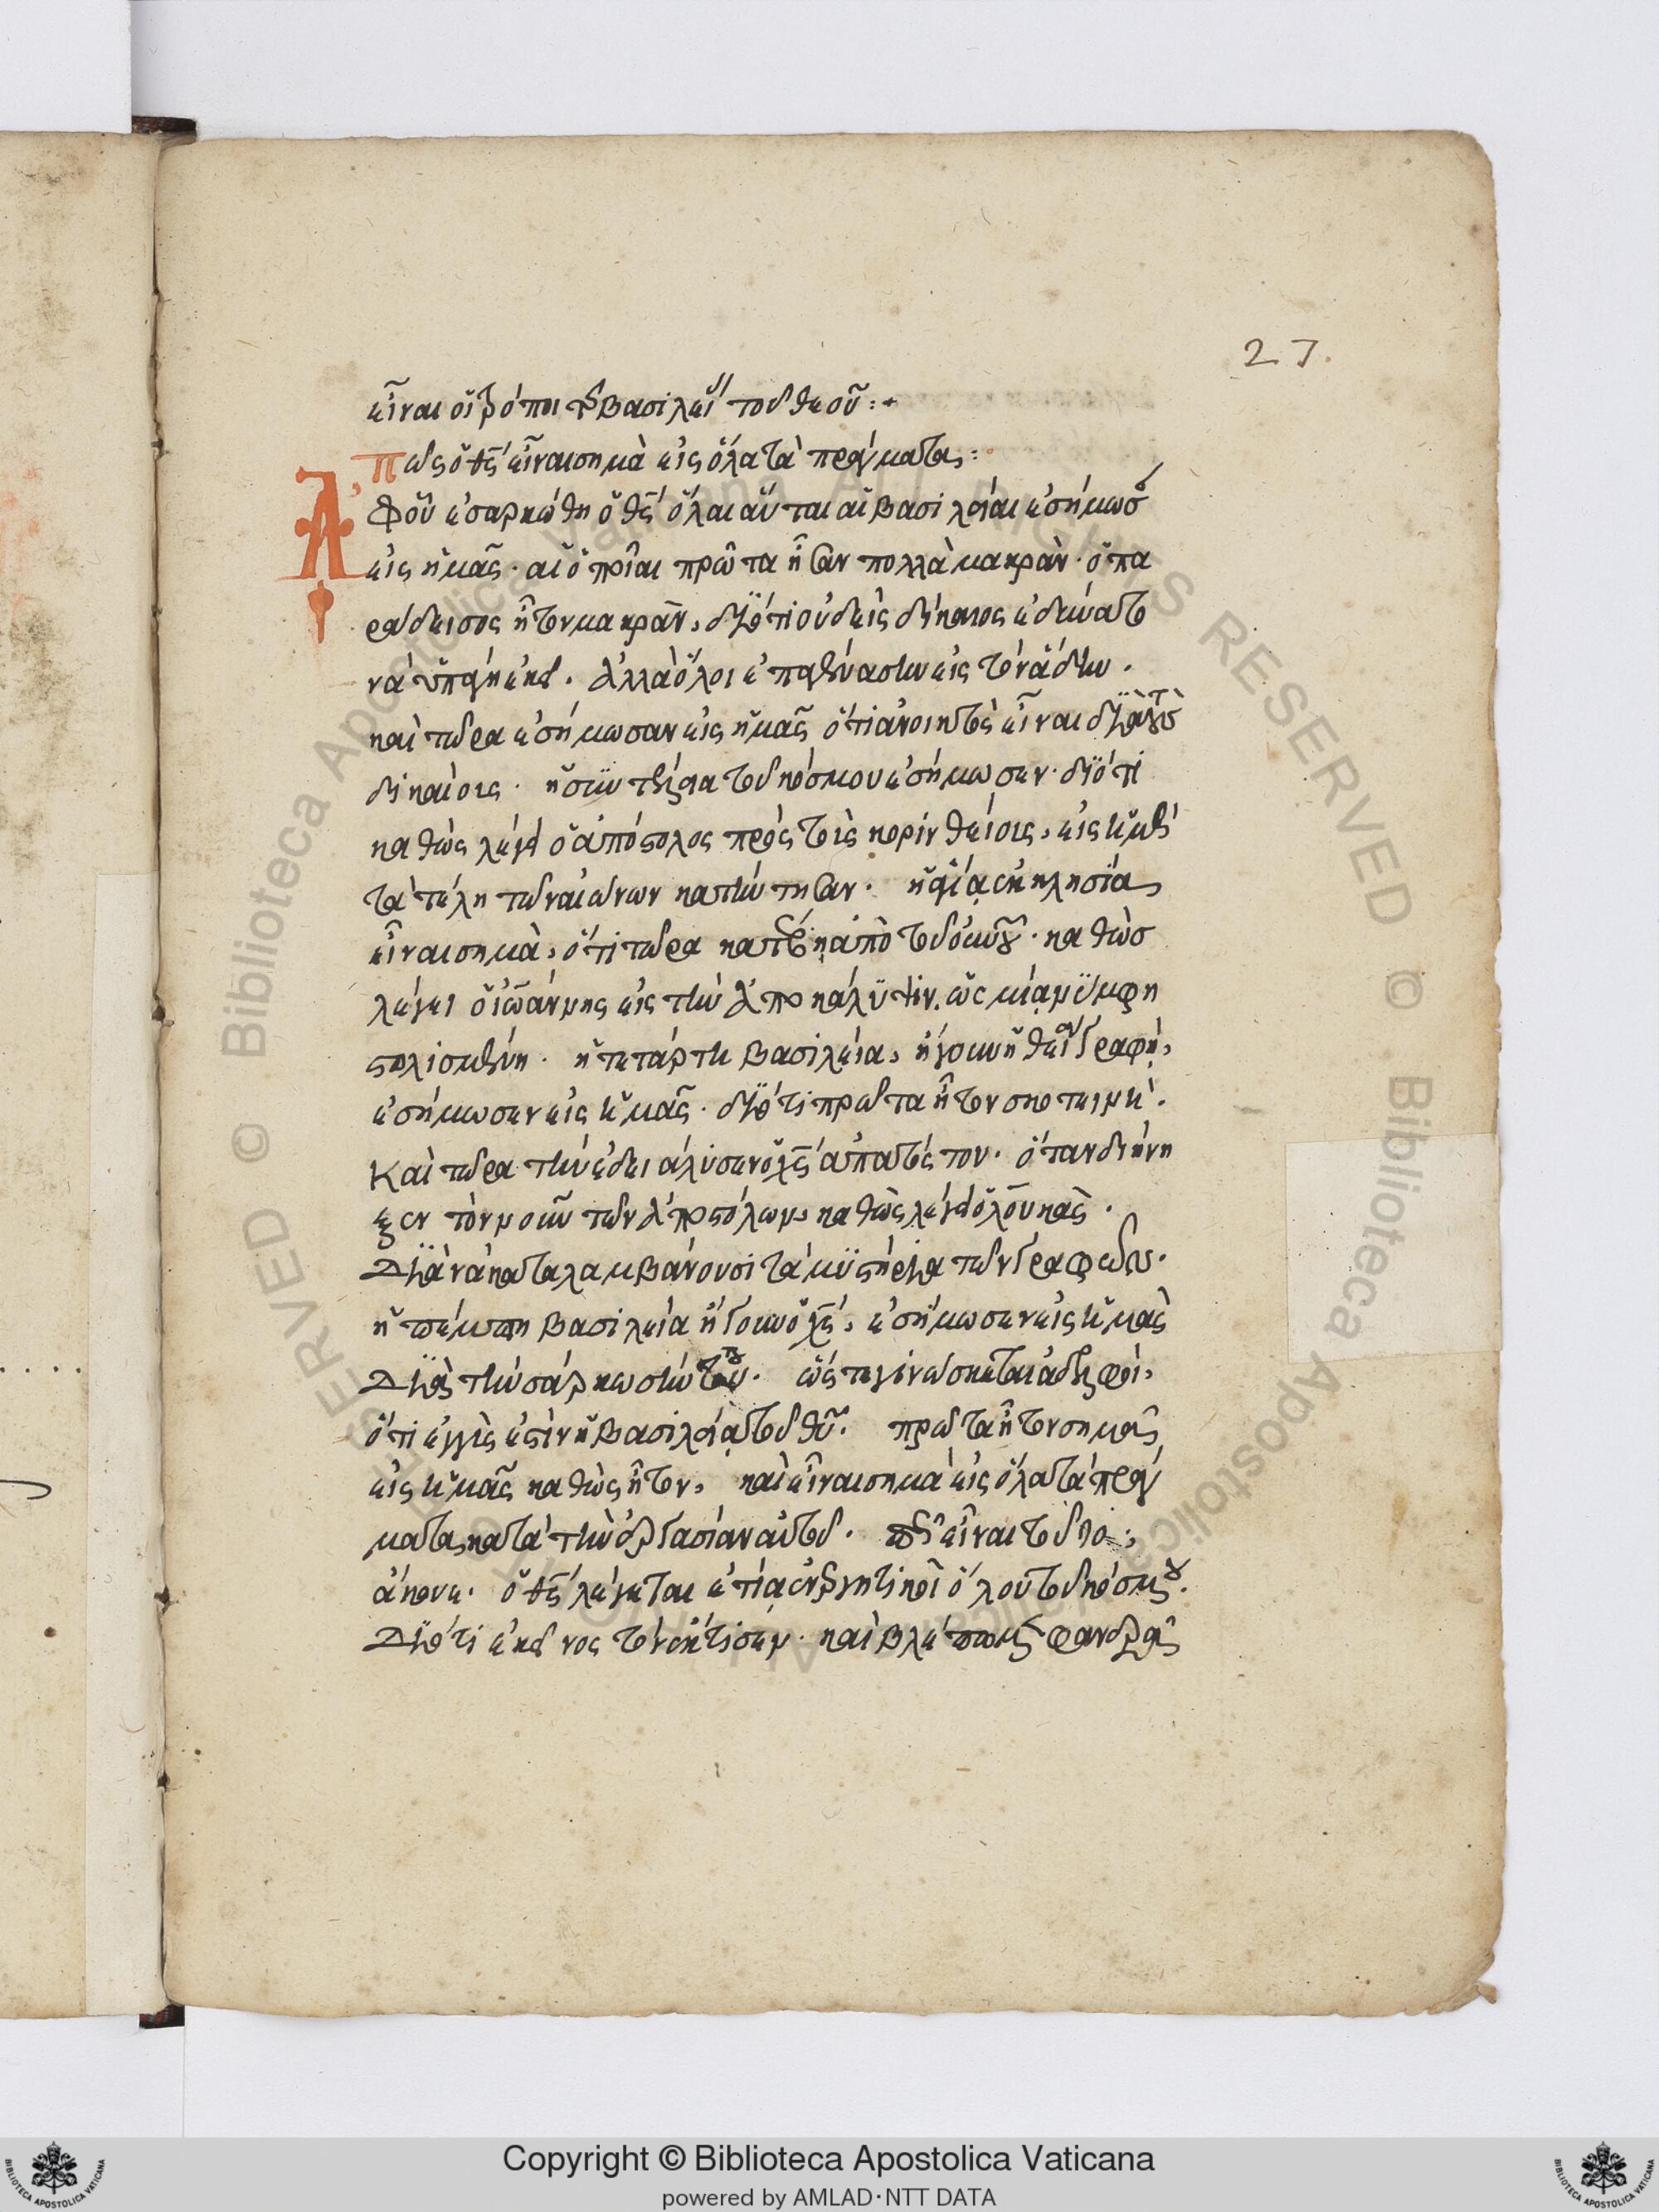 27.
εἶναι οἱ τρόποι τῆς βασιλείας τοῦ θεοῦ :+
πῶς ὁ θς εἶναι σημὰ εἰς ὅλα τὰ πράγματα :
Ἀφοῦ ἐσαρκώθη ὁ θς ὅλαι αὗται αἱ βασιλεῖαι ἐσήμωσ
εἰς ἡμᾶς · αἱ ὁποῖαι πρῶτα ἦσαν πολλὰ μακρὰν · ὁ πα
ράδεισος ἦτον μακρὰν, διότι οὐδεὶς δίκαιος ἐδύνατο
νὰ ὑπάγη ἐκεῖ · ἀλλὰ ὅλοι ἐπαγένασιν εἰς τὸν ἅδην ·
καὶ τώρα ἐσήμωσαν εἰς ἡμᾶς ὅτι ἀνοικτὸς εἶναι διὰ τοὺς
δικαίους · ἡ συντέλεια τοῦ κόσμου ἐσήμωσεν · διότι
καθὼς λέγει ὁ ἀπόστολος πρὸς τοὺς κορινθείους, εἰς ἡμᾶς
τὰ τέλη τῶν αἰώνων κατήντησαν · ἡ ἁγία ἐκκλησία
εἶναι σημὰ, ὅτι τώρα κατέβη ἀπὸ τοῦ οὐνοῦ · καθὼσ
λέγει ὁ ἰωάννης εἰς τὴν ἀποκάλυψιν, ὡς μία νύμφη
στολισμένη · ἡ τετάρτη βασιλεία, ἤγουν ἡ θεία γραφὴ,
ἐσήμωσεν εἰς ἡμᾶς · διότι πρῶτα ἦτον σκοτεινὴ ·
Καὶ τώρα τὴν ἐδιαλύσεν ὁ χς ἀπατός του · ὅταν διήνη
ξεν τὸν νοῦν τῶν ἀποστόλων, καθὼς λέγει ὁ λουκᾶς ·
Διὰ νὰ καταλαμβάνουσι τὰ μυστήρια τῶν γραφῶν ·
ἡ πέμπτη βασιλεία ἤγουν ὁ χς, ἐσήμωσεν εἰς ἡμᾶς
Διὰ τὴν σάρκωσιν του · ὥστε γινώσκεται ἀδελφοὶ,
ὅτι ἐγγὺς ἐστὶν ἡ βασιλεία τοῦ θυ · πρῶτα ἦτον σημὰ
εἰς ἡμᾶς καθὼς ἦτον, καὶ εἶναι σημὰ εἰς ὅλα τὰ πράγ
ματα, κατὰ τὴν ἐργασίαν αὐτοῦ · πῶς εἶναι τοῦτο ;
ἄκουε · ὁ θς λέγεται αἰτία ἐνεργητικὴ ὅλου τοῦ κόσμου ·
Διότι ἐκεῖνος τὸν ἔκτισεν · καὶ βλέπομεν φανερὰ